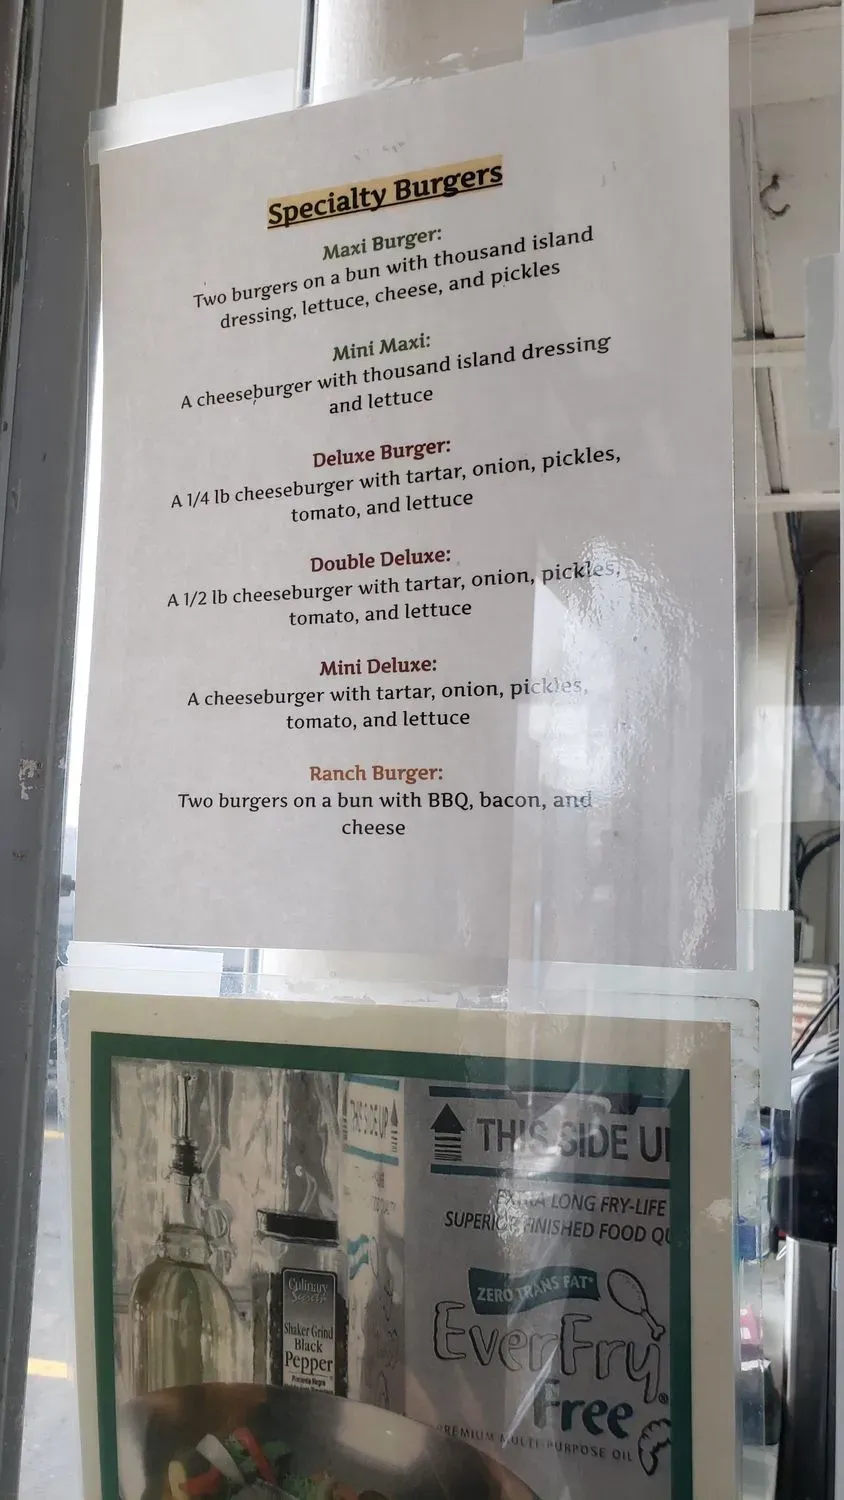 Specialty Burgers
Maxi Burger:
Two burgers on a bun with thousand island
dressing, lettuce, cheese, and pickles
Mini Maxi:
A cheeseburger with thousand island dressing
and lettuce
Deluxe Burger:
A 1/4 lb cheeseburger with tartar, onion, pickles,
tomato, and lettuce
Double Deluxe:
A 1/2 lb cheeseburger with tartar, onion, pickles,
tomato, and lettuce
Mini Deluxe:
A cheeseburger with tartar, onion, pickles,
tomato, and lettuce
Ranch Burger:
Two burgers on a bun with BBQ, bacon, and
cheese
THIS SIDE UP
THIS SIDE U
EXTRA LONG FRY-LIFE
SUPERIOR FINISHED FOOD QU
ZERO TRANS FAT*
EverFry®
Free
PREMIUM MULTI-PURPOSE OIL
Culinary
Secrets
Shaker Grind
Black
Pepper